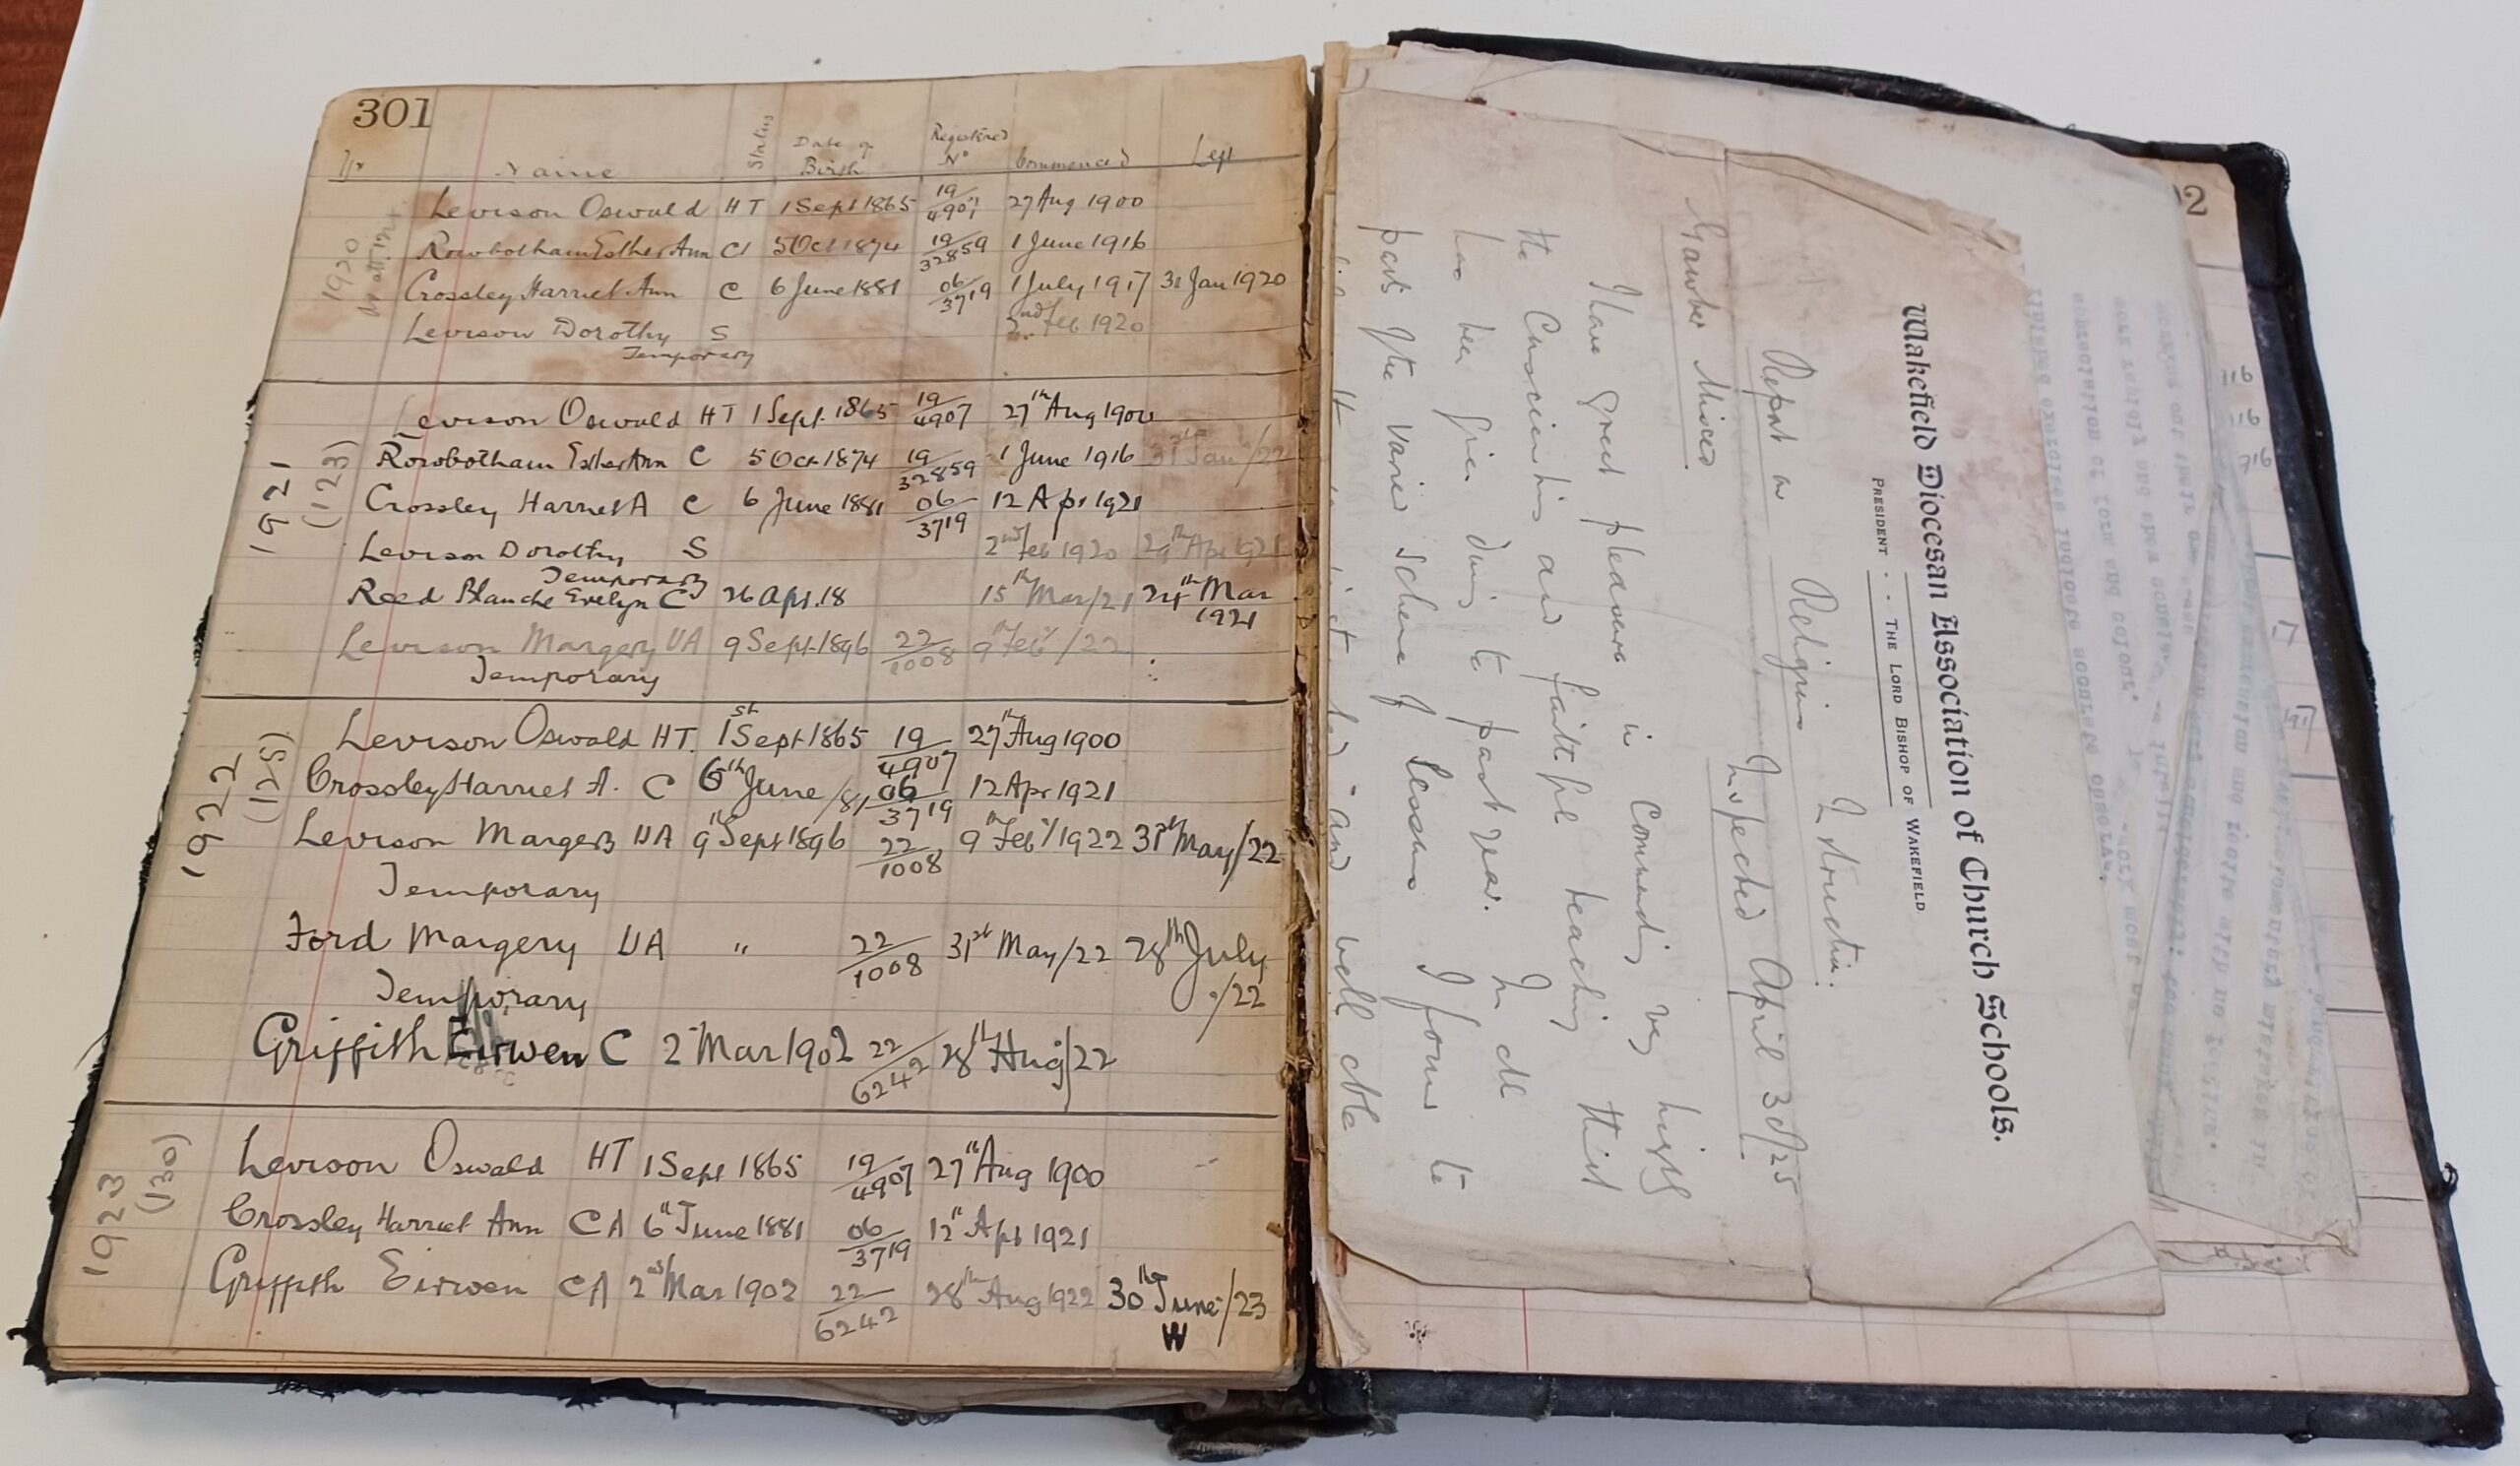 301
Name Status Date of Birth Registered No Commenced Left
1920
Levison Oswald HT 1 Sept 1865 19/4907 27 Aug 1900
Rowbotham Esther Ann C 5 Oct 1874 19/32859 1 June 1916
Crossley Harriet Ann C 6 June 1881 06/3719 1 July 1917 31 Jan 1920
Levison Dorothy S 2nd Feb 1920
Temporary
1921
(123)
Levison Oswald HT 1 Sept. 1865 19/4907 27th Aug 1900
Rowbotham Esther Ann C 5 Oct 1874 19/32859 1 June 1916 31st Jan/22
Crossley Harriet A C 6 June 1881 06/3719 12 Apr 1921
Levison Dorothy S 2nd Feb 1920 29th Apr 1921
Temporary
Reed Blanche Evelyn C 26 Apr. 18 15th Mar/21 24th Mar
1921
Levison Margery UA 9 Sept 1896 22/1008 9th Feby/22
Temporary
1922
(125)
Levison Oswald HT. 1st Sept 1865 19/4907 27th Aug 1900
Crossley Harriet A. C 6th June/81 06/3719 12 Apr 1921
Levison Margery UA 9th Sept 1896 22/1008 9th Feby/1922 31st May/22
Temporary
Ford Margery UA " 22/1008 31st May/22 28th July
/22
Temporary
Griffith Eirwen C 2 Mar 1902 22/6242 28th Aug/22
1923
(130)
Levison Oswald HT 1 Sept 1865 19/4907 27th Aug 1900
Crossley Harriet Ann CA 6th June 1881 06/3719 12th Apr 1921
Griffith Eirwen CA 2nd Mar 1902 22/6242 28th Aug 1922 30th June/23
W
Wakefield Diocesan Association of Church Schools.
PRESIDENT - - THE LORD BISHOP OF WAKEFIELD
Report on Religious Instruction.
Inspected April 30/25
Gawber Mixed
I have great pleasure in commending very highly
the conscientious and faithful teaching that
has been given during the past year. In all
parts of the varied scheme of lessons I found to
well able